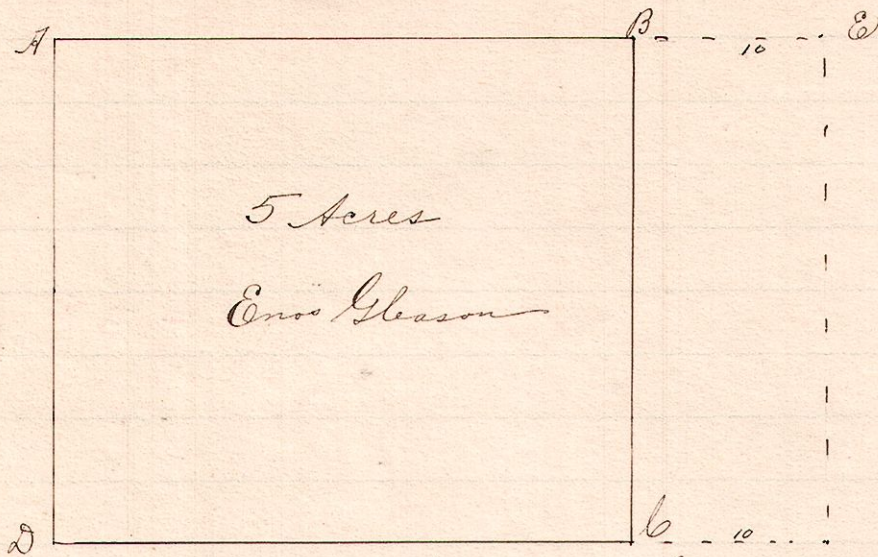 A B E
10
5 Acres
Enos Gleason
D C 10